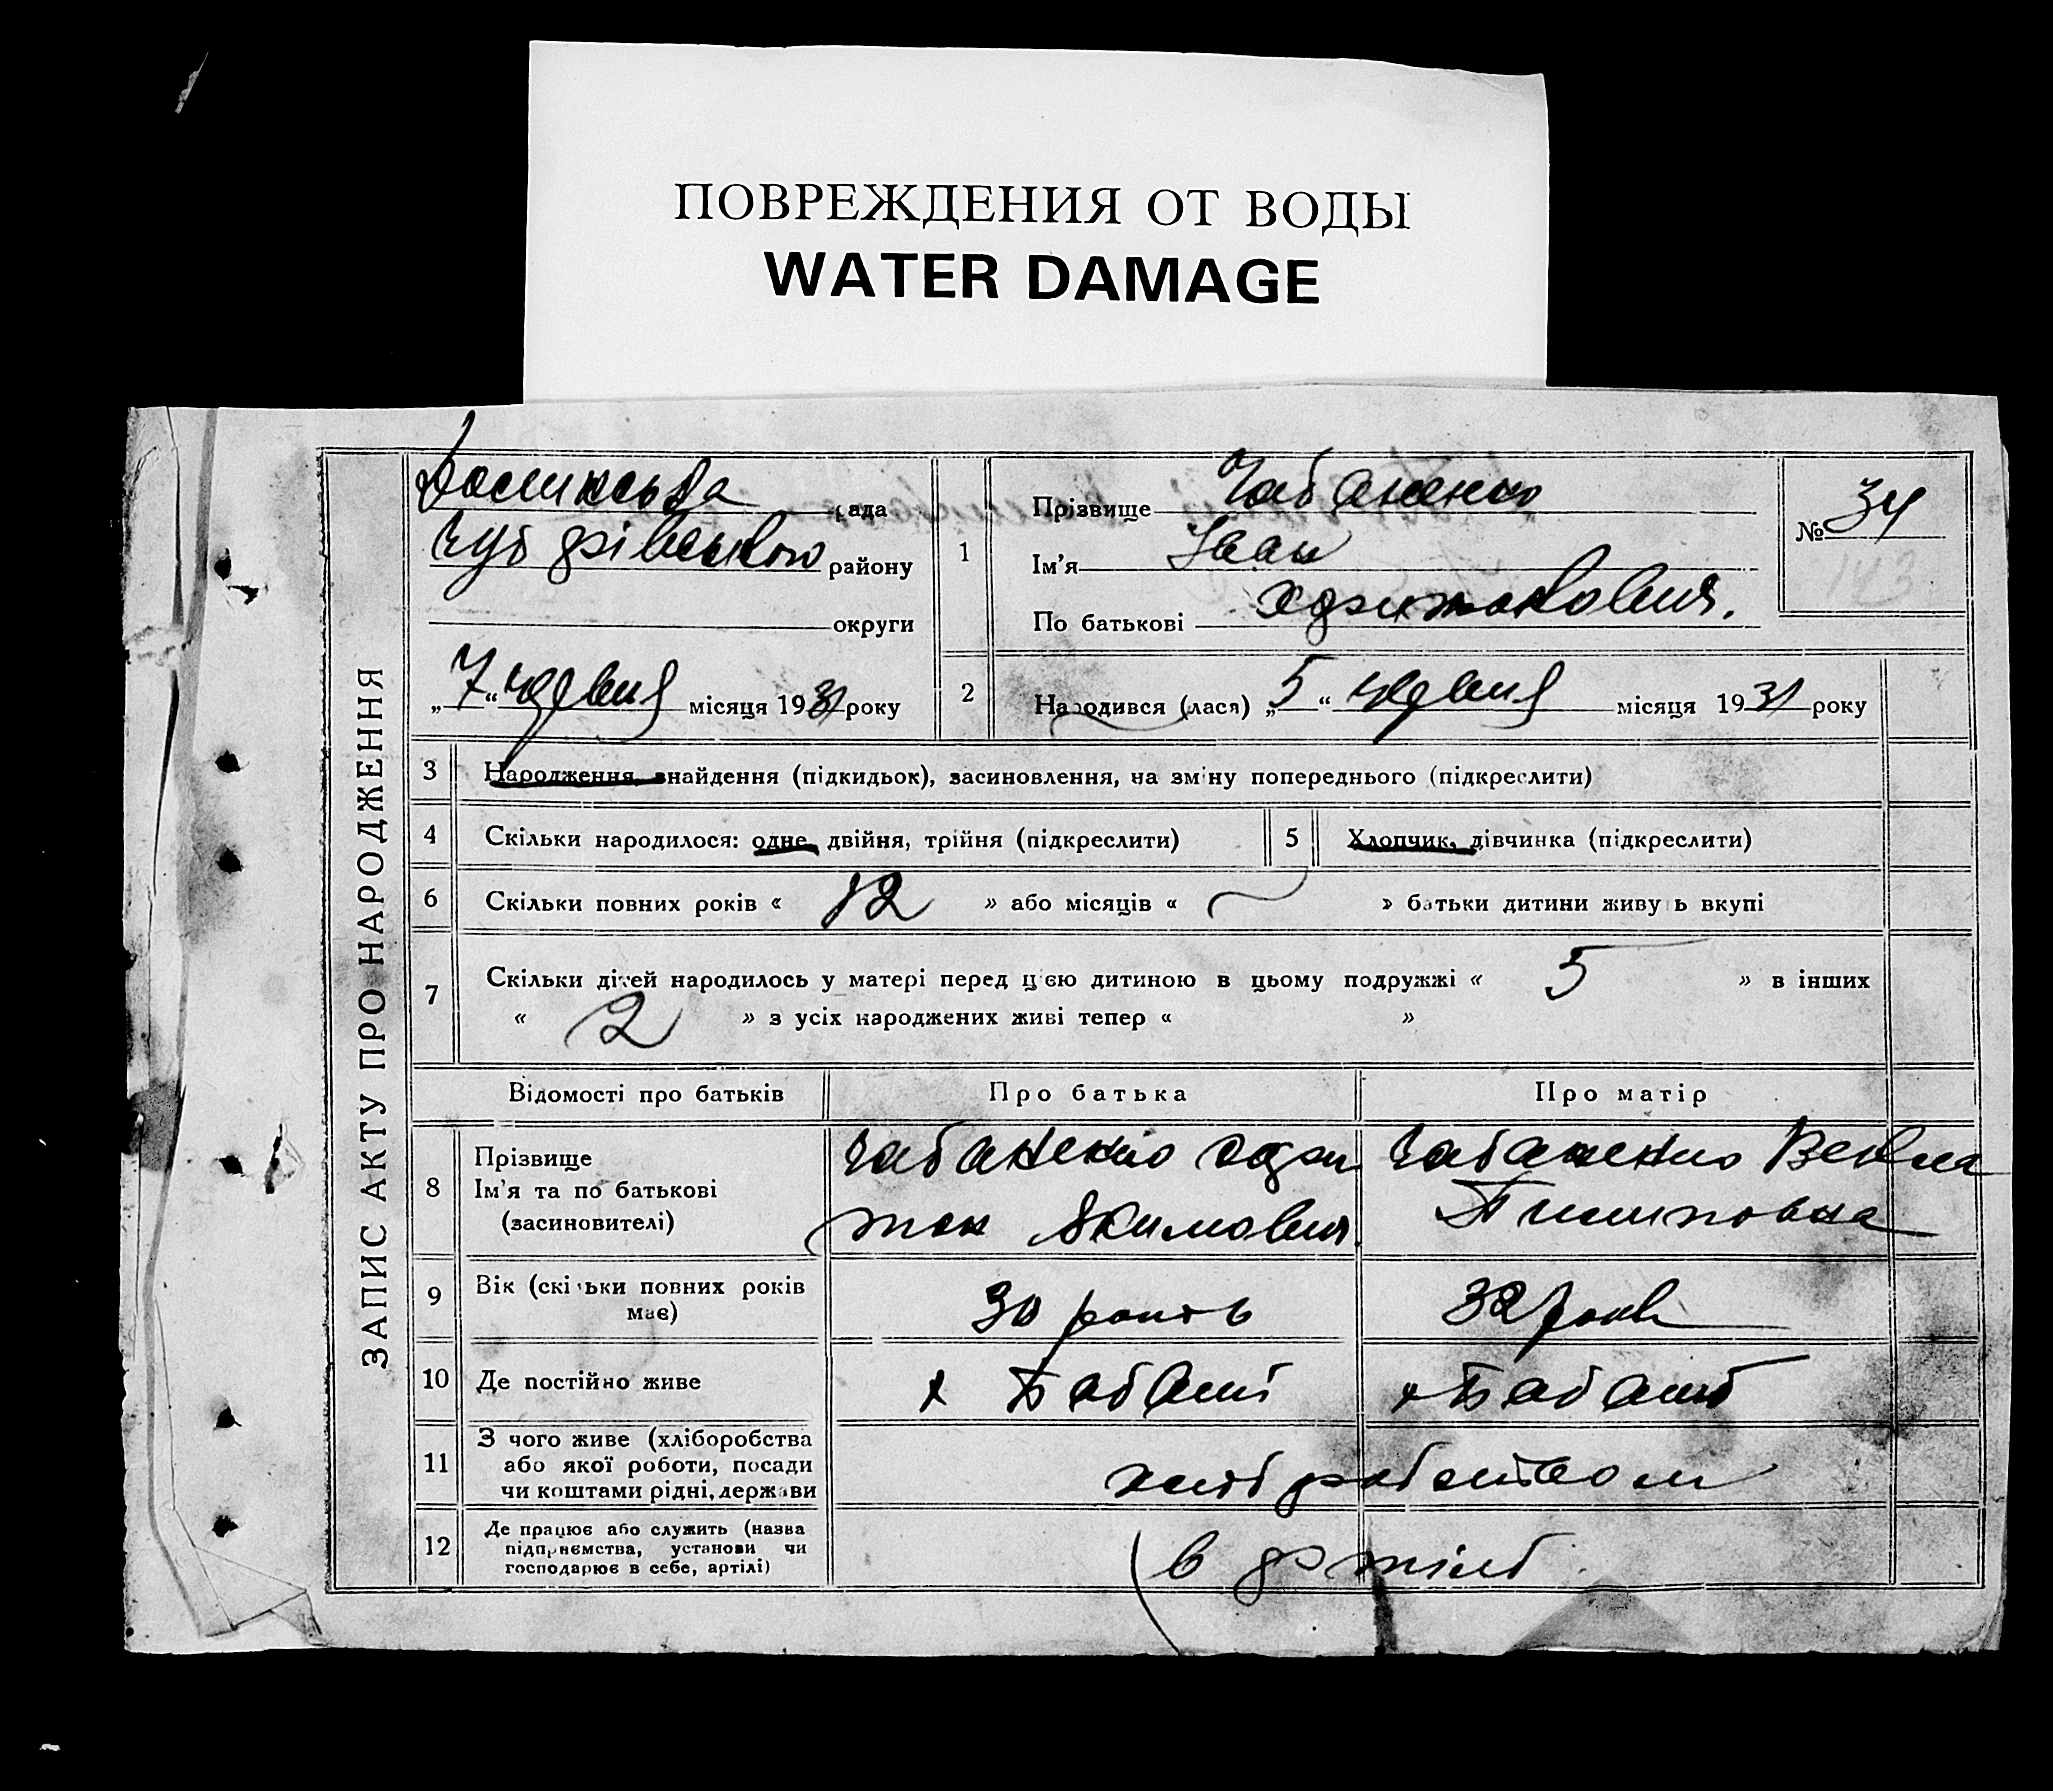 ПОВРЕЖДЕНИЯ ОТ ВОДЫ
WATER DAMAGE
ЗАПИС АКТУ ПРО НАРОДЖЕННЯ
рада
району
округи
„7“ червня місяця 1931 року
1
Прізвище Чабаненко
Ім'я Іван
По батькові
№ 34
143
2
Народився (лася) „5“ червня місяця 1931 року
3
Народження, знайдення (підкидьок), засиновлення, на зміну попереднього (підкреслити)
4
Скільки народилося: одне, двійня, трійня (підкреслити)
5
Хлопчик, дівчинка (підкреслити)
6
Скільки повних років « 12 » або місяців « — » батьки дитини живуть вкупі
7
Скільки дітей народилось у матері перед цією дитиною в цьому подружжі « 5 » в інших
« 2 » з усіх народжених живі тепер « »
Відомості про батьків
Про батька
Про матір
8
Прізвище
Ім'я та по батькові
(засиновителі)
Чабаненко
Якимович
Чабаненко Векла
Пилиповна
9
Вік (скільки повних років
має)
30 років
32 роки
10
Де постійно живе
х Бабані
х Бабані
11
З чого живе (хліборобства
або якої роботи, посади
чи коштами рідні, держави
хліборобством
12
Де працює або служить (назва
підприємства, установи чи
господарює в себе, артілі)
в артілі